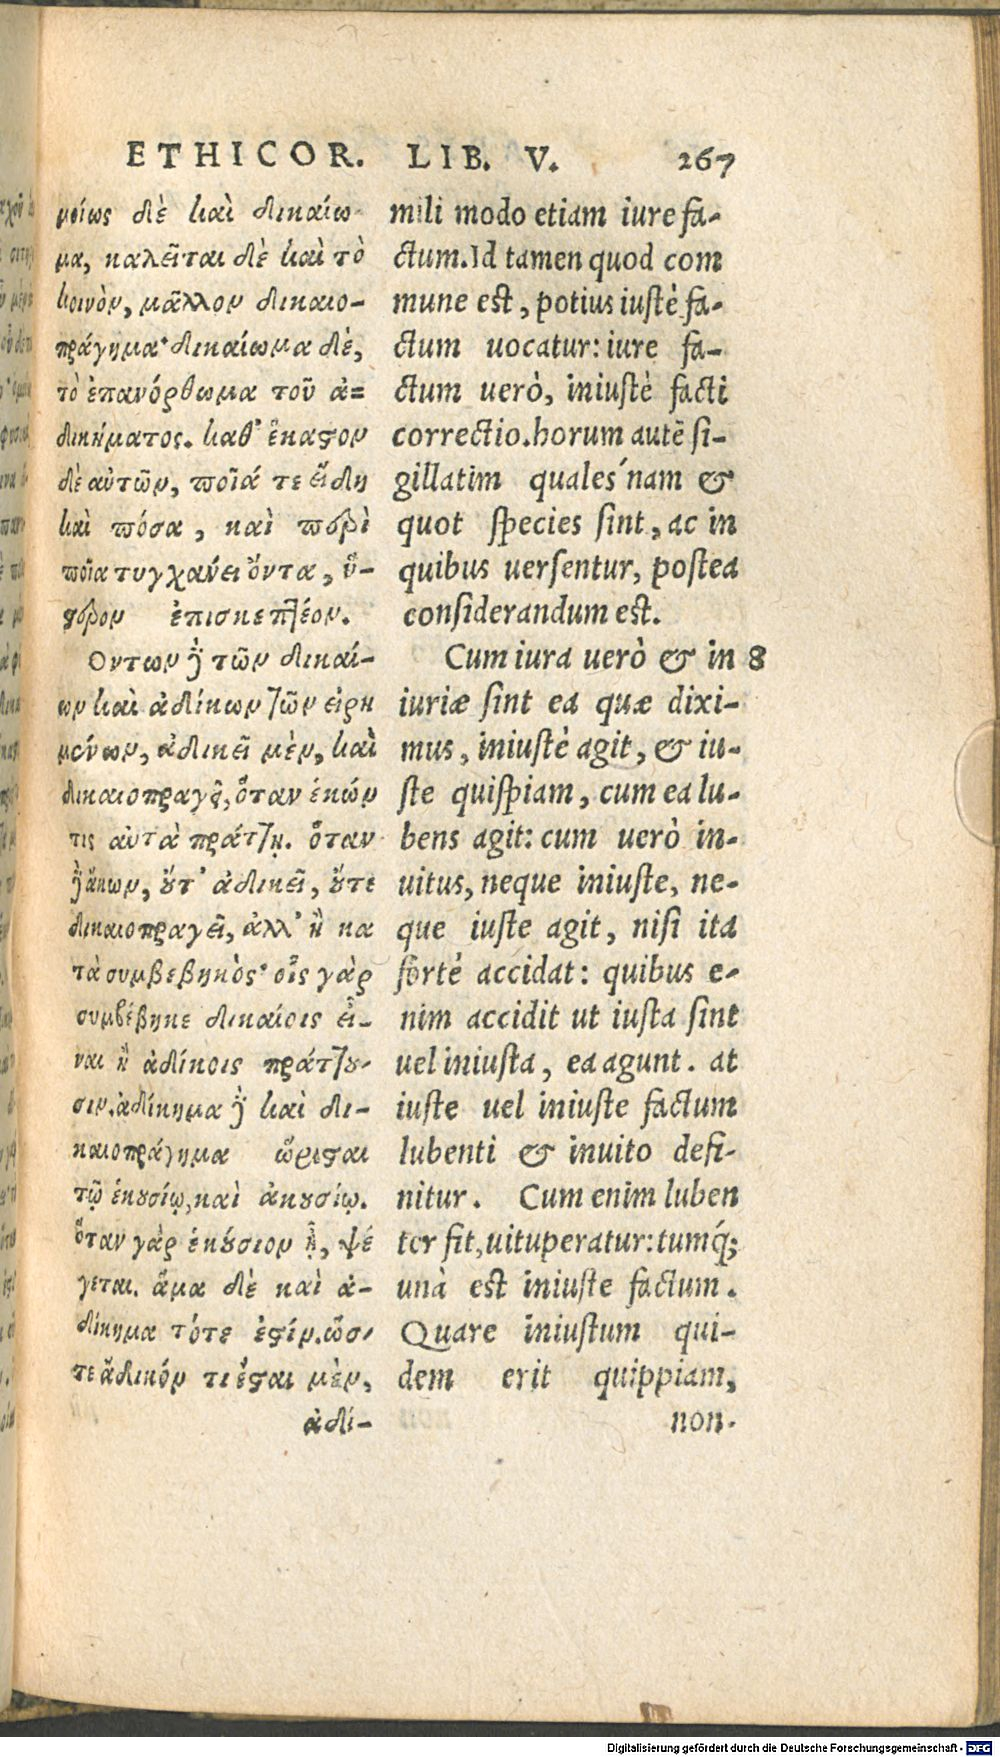 ETHICOR. LIB. V. 267
μοίως δὲ καὶ δικαίω
μα, καλεῖται δὲ καὶ τὸ
κοινὸν, μᾶλλον δικαιο-
πράγημα· δικαίωμα δὲ,
τὸ ἐπανόρθωμα τοῦ ἀ=
δικήματος. καθ' ἕκαϛον
δὲ αὐτῶν, ποῖά τε εἴδη
καὶ πόσα, καὶ περὶ
ποῖα τυγχάνει ὄντα, ὕ-
ϛερον ἐπισκεπτέον.
Οντων δὲ τῶν δικαί-
ων καὶ ἀδίκων τῶν εἰρη
μένων, ἀδικεῖ μὲν, καὶ
δικαιοπραγεῖ, ὅταν ἑκών
τις αὐτὰ πράττῃ. ὅταν
δὲ ἄκων, ȣ̓́τ' ἀδικεῖ, ȣ̓́τε
δικαιοπραγεῖ, ἀλλ' ἢ κα
τὰ συμβεβηκὸς· οἷς γὰρ
συμβέβηκε δικαίοις εἶ-
ναι ἢ ἀδίκοις πράττȣ-
σιν. ἀδίκημα δὲ καὶ δι-
καιοπράγημα ὥριϛαι
τῷ ἑκȣσίῳ, καὶ ἀκȣσίῳ.
ὅταν γὰρ ἑκȣ́σιον ᾖ, ψέ
γεται. ἅμα δὲ καὶ ἀ-
δίκημα τότε ἐϛίν. ὥσ-
τε ἄδικόν τι ἔϛαι μὲν,
ἀδί-
mili modo etiam iure fa-
ctum. Id tamen quod com
mune est, potius iustè fa-
ctum uocatur: iure fa-
ctum uerò, iniustè facti
correctio. horum autẽ si-
gillatim quales'nam &
quot species sint, ac in
quibus uersentur, postea
considerandum est.
Cum iura uerò & in 8
iuriæ sint ea quæ dixi-
mus, iniustè agit, & iu-
ste quispiam, cum ea lu-
bens agit: cum uerò in-
uitus, neque iniuste, ne-
que iuste agit, nisi ita
fortè accidat: quibus e-
nim accidit ut iusta sint
uel iniusta, ea agunt. at
iuste uel iniuste factum
lubenti & inuito defi-
nitur. Cum enim luben
ter fit, uituperatur: tumq́;
unà est iniuste factum.
Quare iniustum qui-
dem erit quippiam,
non-
Digitalisierung gefördert durch die Deutsche Forschungsgemeinschaft - DFG